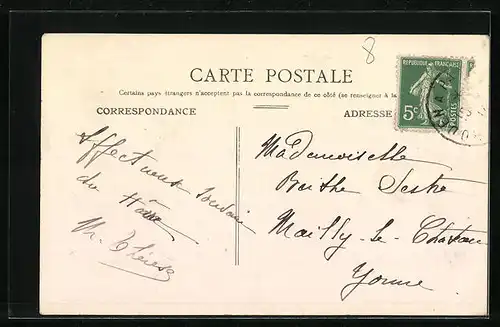 8
CARTE POSTALE
Certains pays étrangers n'acceptent pas la correspondance de ce côté (se renseigner à la
CORRESPONDANCE
ADRESSE
REPUBLIQUE FRANÇAISE
5c
POSTES
Affectueux
du
Mademoiselle
Berthe
Mailly-le-Château
Yonne